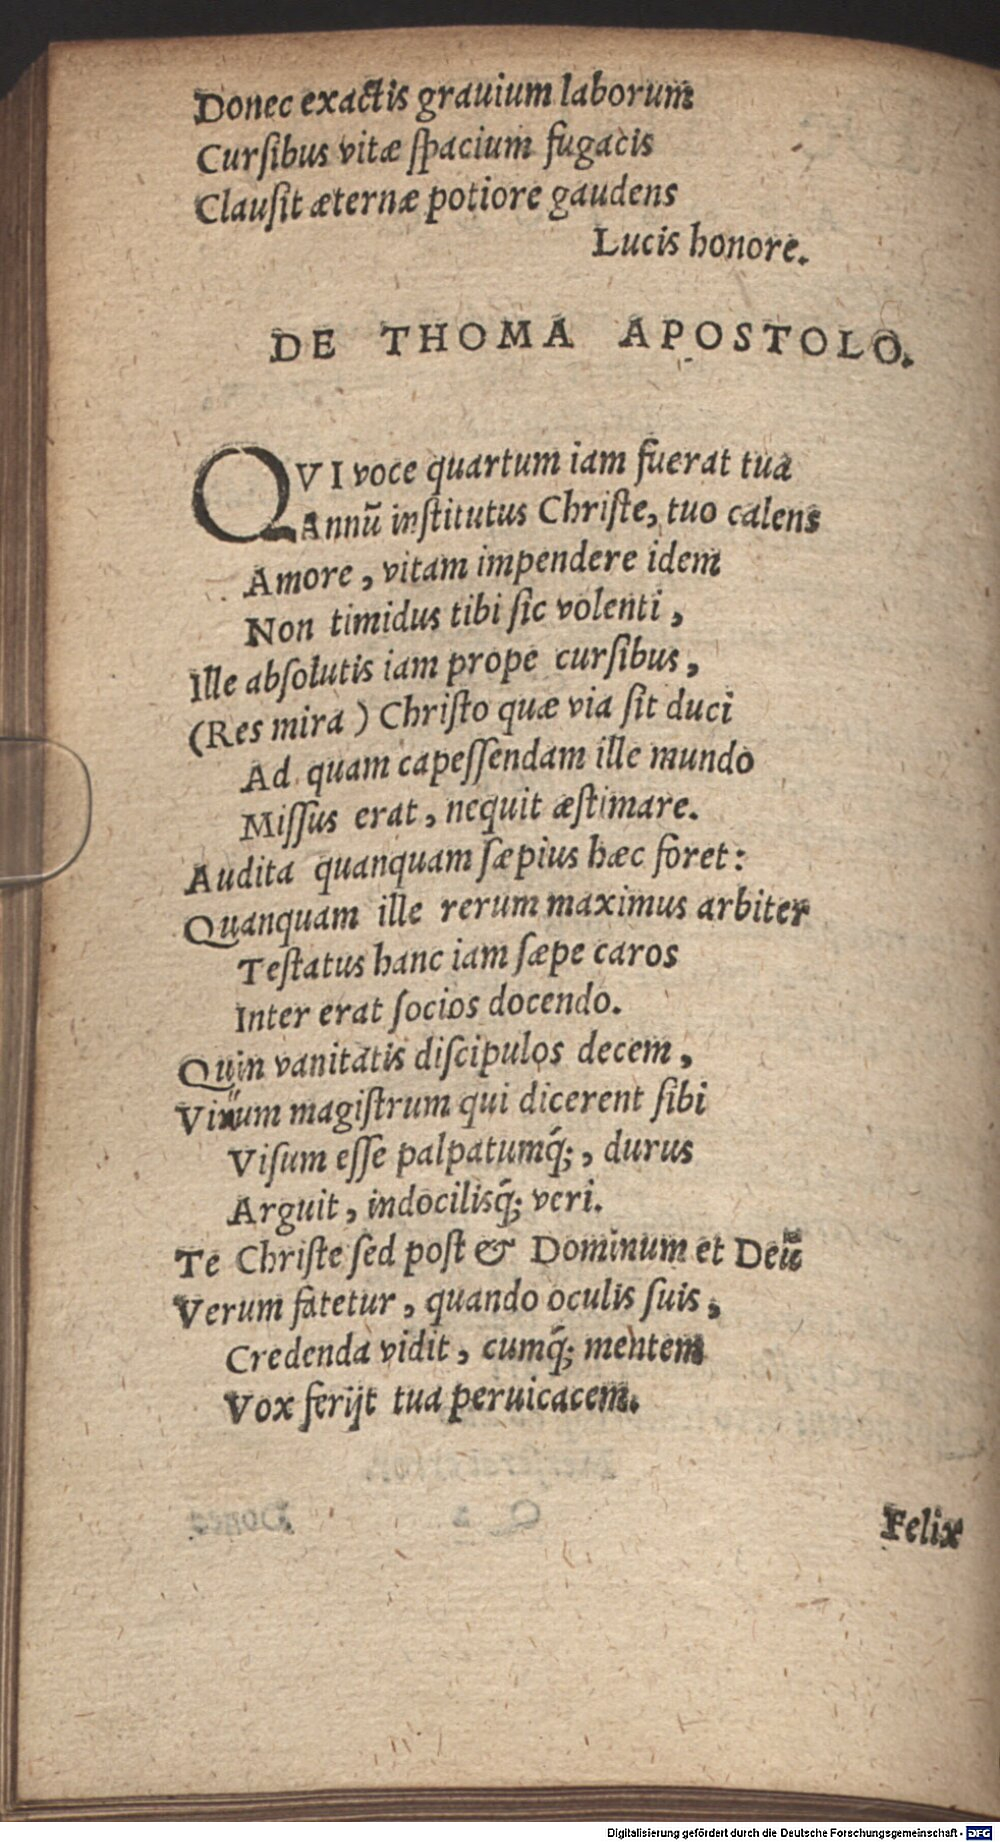 Donec exactis grauium laborum
Curſibus vitæ ſpacium fugacis
Clauſit æternæ potiore gaudens
Lucis honore.
DE THOMA APOSTOLO.
QVI voce quartum iam fuerat tua
Annũ inſtitutus Chriſte, tuo calens
Amore, vitam impendere idem
Non timidus tibi ſic volenti,
Ille abſolutis iam prope curſibus,
(Res mira) Chriſto quæ via ſit duci
Ad quam capeſſendam ille mundo
Miſſus erat, nequit æſtimare.
Audita quanquam ſæpius hæc foret:
Quanquam ille rerum maximus arbiter
Teſtatus hanc iam ſæpe caros
Inter erat ſocios docendo.
Quin vanitatis diſcipulos decem,
magiſtrum qui dicerent ſibi
Viſum eſſe palpatumq́;, durus
Arguit, indocilisq́; veri.
Te Chriſte ſed poſt & Dominum et Deũ
Verum fatetur, quando oculis ſuis,
Credenda vidit, cumq́; mentem
Vox ferijt tua peruicacem.
Felix
Digitalisierung gefördert durch die Deutsche Forschungsgemeinschaft - DFG